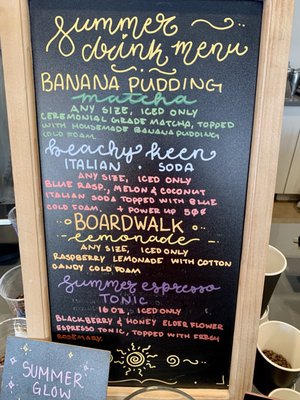 Summer
drink menu
BANANA PUDDING
matcha
ANY SIZE, ICED ONLY
CEREMONIAL GRADE MATCHA, TOPPED
WITH HOMEMADE BANANA PUDDING
COLD FOAM.
beachy keen
ITALIAN SODA
ANY SIZE, ICED ONLY
BLUE RASP., MELON & COCONUT
ITALIAN SODA TOPPED WITH BLUE
COLD FOAM. POWER UP 50¢
BOARDWALK
lemonade
ANY SIZE, ICED ONLY
RASPBERRY LEMONADE WITH COTTON
CANDY COLD FOAM
Summer espresso
TONIC
16 OZ, ICED ONLY
BLACKBERRY & HONEY ELDERFLOWER
ESPRESSO TONIC, TOPPED WITH FRESH
ROSEMARY.
SUMMER
GLOW